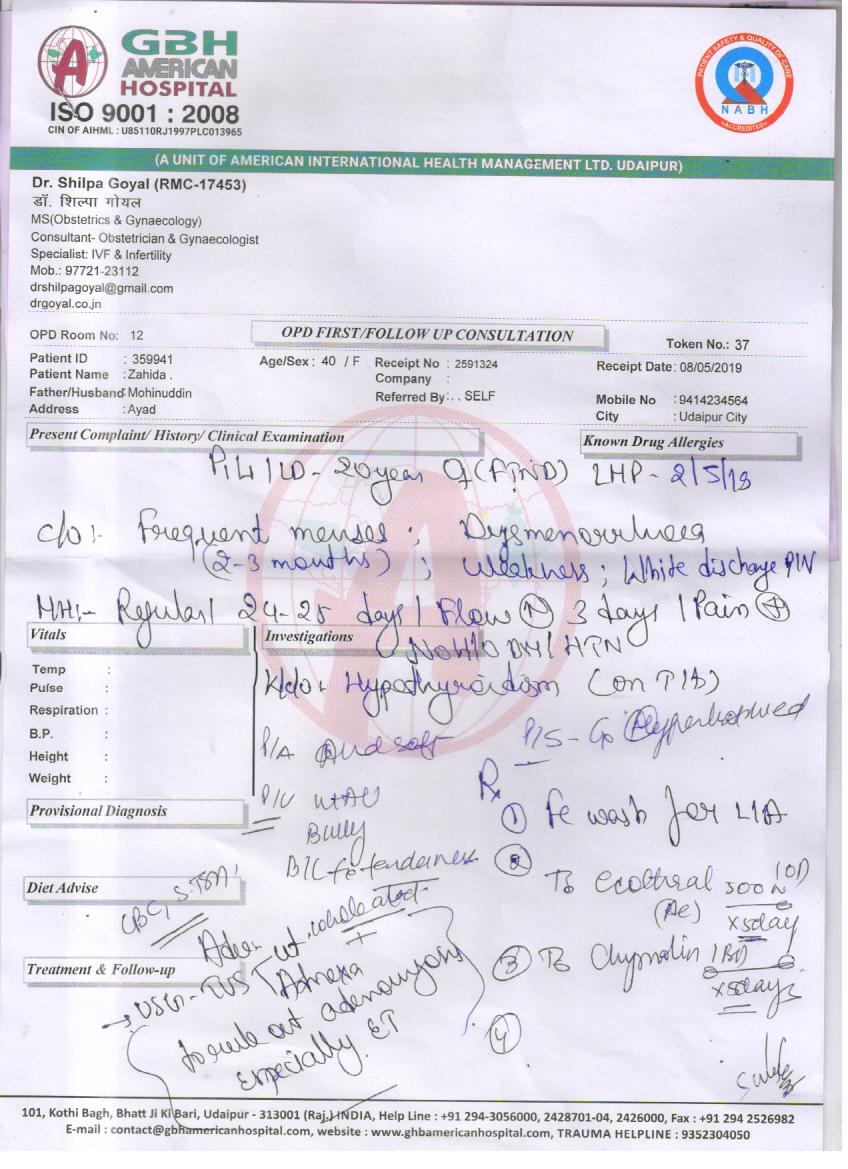 GBH
AMERICAN
HOSPITAL
ISO 9001 : 2008
CIN OF AIHML : U85110RJ1997PLC013965
PATIENT SAFETY & QUALITY OF CARE
NABH
ACCREDITED
(A UNIT OF AMERICAN INTERNATIONAL HEALTH MANAGEMENT LTD. UDAIPUR)
Dr. Shilpa Goyal (RMC-17453)
डॉ. शिल्पा गोयल
MS(Obstetrics & Gynaecology)
Consultant- Obstetrician & Gynaecologist
Specialist: IVF & Infertility
Mob.: 97721-23112
drshilpagoyal@gmail.com
drgoyal.co.jn
OPD Room No: 12
OPD FIRST/FOLLOW UP CONSULTATION
Token No.: 37
Patient ID : 359941
Age/Sex : 40 / F
Receipt No : 2591324
Receipt Date: 08/05/2019
Patient Name : Zahida .
Company :
Father/Husband: Mohinuddin
Referred By: . . SELF
Mobile No : 9414234564
Address : Ayad
City : Udaipur City
Present Complaint/ History/ Clinical Examination
Known Drug Allergies
LD - 20 year (FTND) LMP - 2/5/19
c/o :- Frequent menses ; Dysmenorrhoea
(2-3 months) ; weakness ; White discharge P/V
MH:- Regular / 24-25 days / Flow (N) 3 days / Pain (+)
Vitals
Investigations
No H/O DM / HTN
K/c/o Hypothyroidism (on T/t)
Temp :
Pulse :
Respiration :
B.P. :
Height :
Weight :
P/A soft
P/S - Cx Hypertrophied
Rx
P/V ut AV
Bulky
B/L fx tenderness
Provisional Diagnosis
① wash for L/A
② Tb 500 (OD)
(Ac) x 5 day
Diet Advise
CBC, S. TSH
③ Tb Chymolin 1 BD
x 5 days
Treatment & Follow-up
Adv
→ USG - TVS ut
+
Adnexa
to rule out adenomyosis
especially ET
④
101, Kothi Bagh, Bhatt Ji Ki Bari, Udaipur - 313001 (Raj.) INDIA, Help Line : +91 294-3056000, 2428701-04, 2426000, Fax : +91 294 2526982
E-mail : contact@gbhamericanhospital.com, website : www.ghbamericanhospital.com, TRAUMA HELPLINE : 9352304050